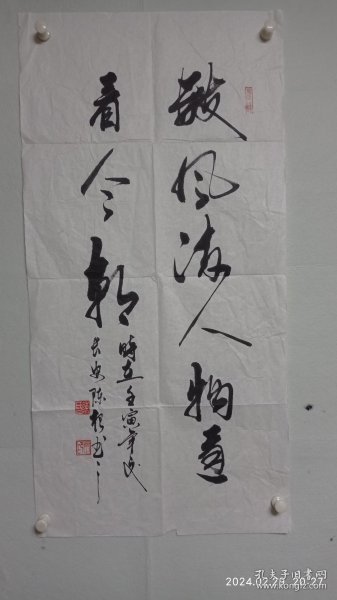 数风流人物还
看今朝
時在壬寅年戌
長安陈
2024.02.23 20:27
孔夫子旧书网